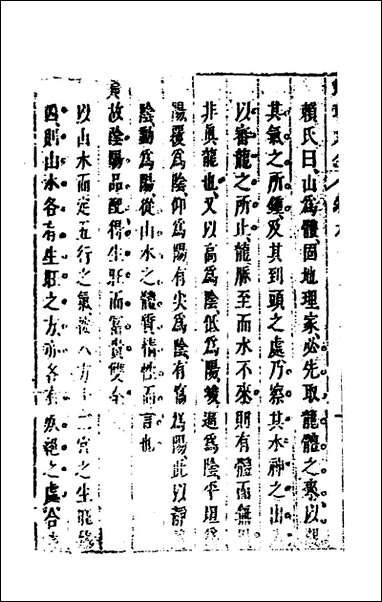 賴氏曰山為體固地理家必先取龍體之來以
其氣之所鍾及其到頭之處乃察其水神之出
以審龍之所止龍脈至而水不來則有體而無
非眞龍也又以高為陰低為陽陡為陰平坦為
陽覆為陰仰為陽有尖為陰有窩為陽此以靜
陰動為陽從山水之體質情性而言也
故陰陽品配得生旺而富貴雙全
以山水而定五行之氣從八方十二宮之生旺
四則山水各有生旺之方亦各有病絕之處合